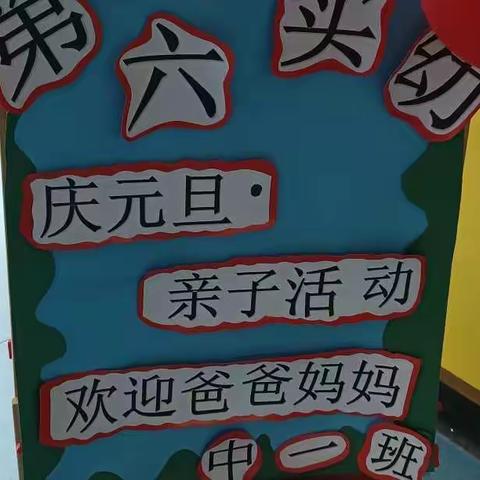 第六实幼
庆元旦·
亲子活动
欢迎爸爸妈妈
中一班